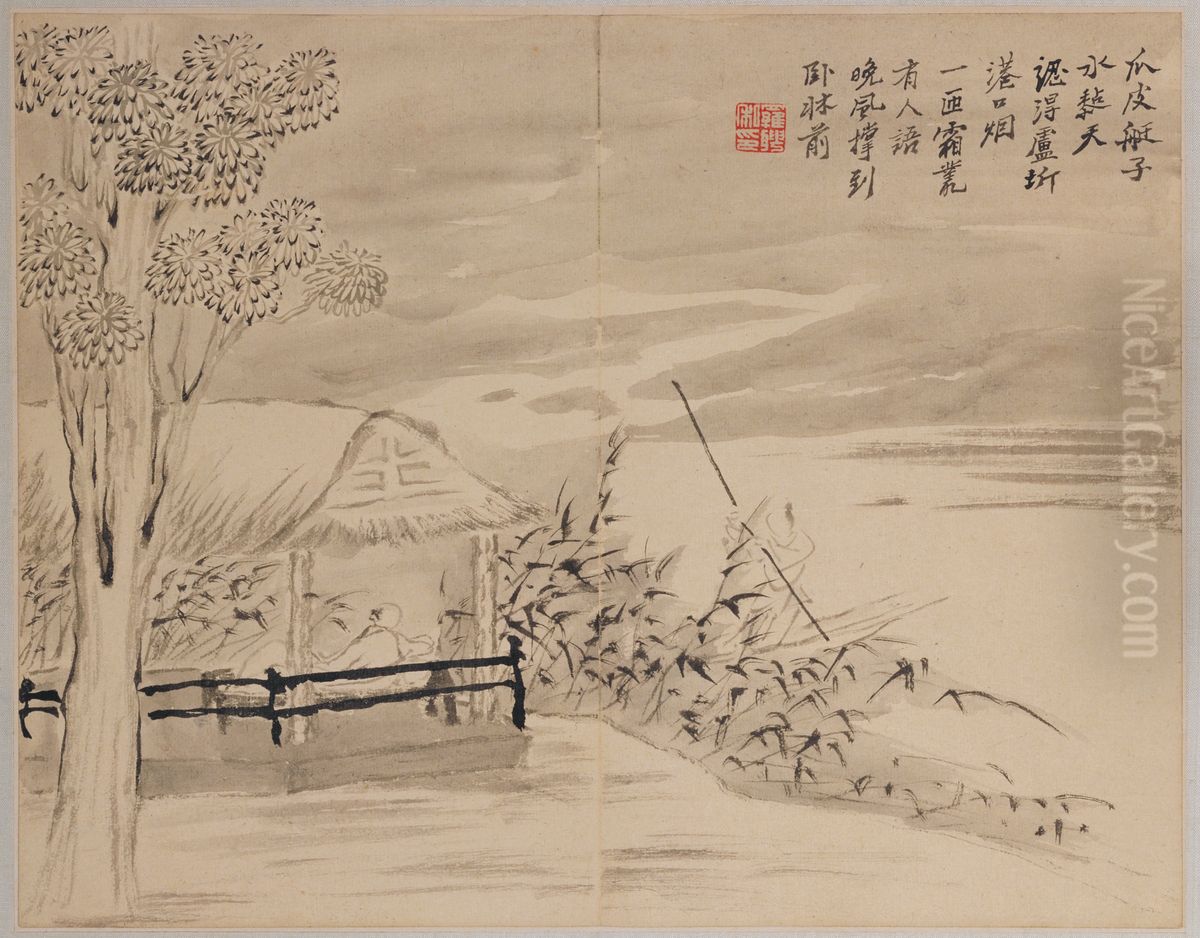 瓜皮艇子
水黏天
認得盧圻
港口烟
一匝霜叢
有人語
晚風撑到
卧牀前
羅聘
私印
NiceArtGallery.com